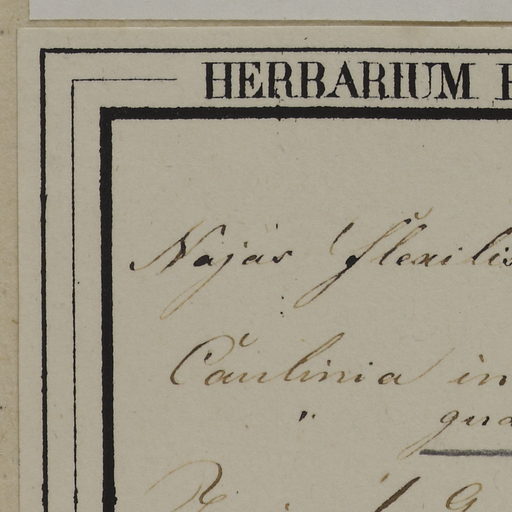 HERBARIUM
Najas flexilis
Caulinia in
"